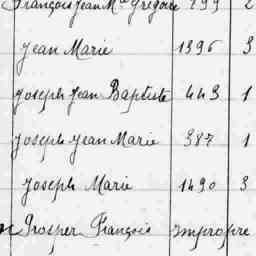 François Jean Mie Grégoire 299 2
Jean Marie 1396 3
Joseph Jean Baptiste 443 1
Joseph Jean Marie 387 1
Joseph Marie 1490 3
Prosper François impropre